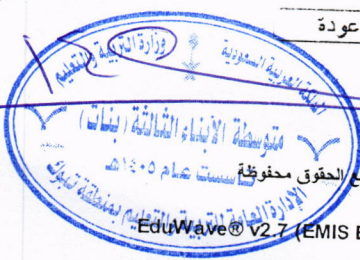 عودة
المملكة العربية السعودية
وزارة التربية والتعليم
متوسطة الأبناء الثالثة (بنات)
تأسست عام ١٤٠٥هـ
الإدارة العامة للتربية والتعليم بمنطقة تبوك
ع الحقوق محفوظة
EduWave® v2.7 (EMIS E